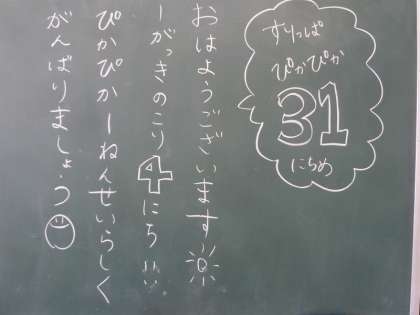 すりっぱ
ぴかぴか
31
にちめ
おはようございます
一がっきのこり4にち
ぴかぴか一ねんせいらしく
がんばりましょう